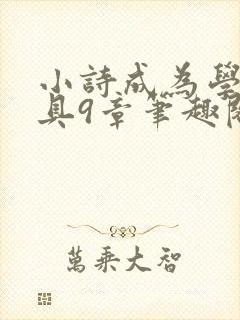 小詩成為學
具9章筆趣閱
萬乘大智